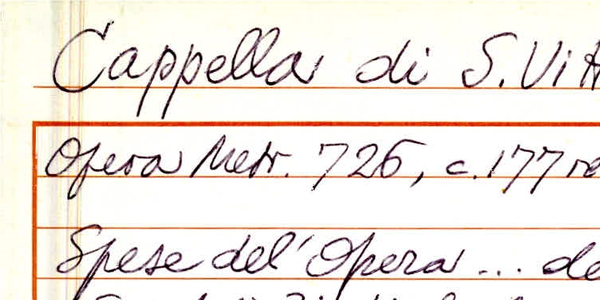 Cappella di S. Vitt
Opera Metr. 726, c. 177 re
Spese del'Opera ... de